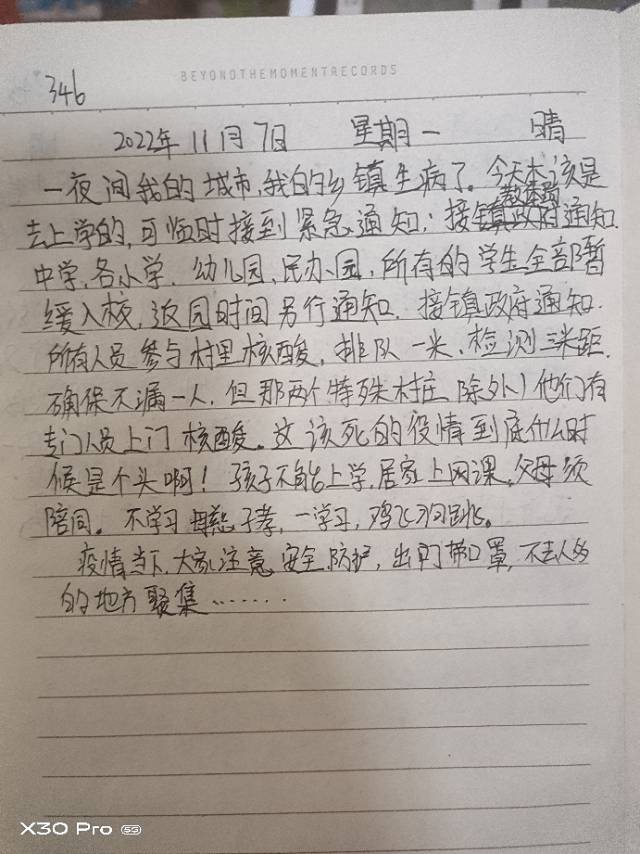 BEYONDTHEMOMENTRECORDS
346
2022年11月7日 星期一 晴
一夜间我的城市,我的乡镇生病了。今天本该是
教体局
去上学的,可临时接到紧急通知:接镇政府通知.
中学,各小学.幼儿园,民办园,所有的学生全部暂
缓入校,返园时间另行通知.接镇政府通知.
所有人员参与村里核酸,排队一米、检测三米距.
确保不漏一人,但那两个特殊村庄除外)他们有
专门人员上门核酸。这该死的役情到底什么时
候是个头啊!孩子不能上学,居家上网课,父母须
陪同。不学习母慈子孝,一学习,鸡飞狗跳。
疫情当下,大家注意安全防护,出门带口罩,不去人多
的地方聚集.......
X30 Pro 5G